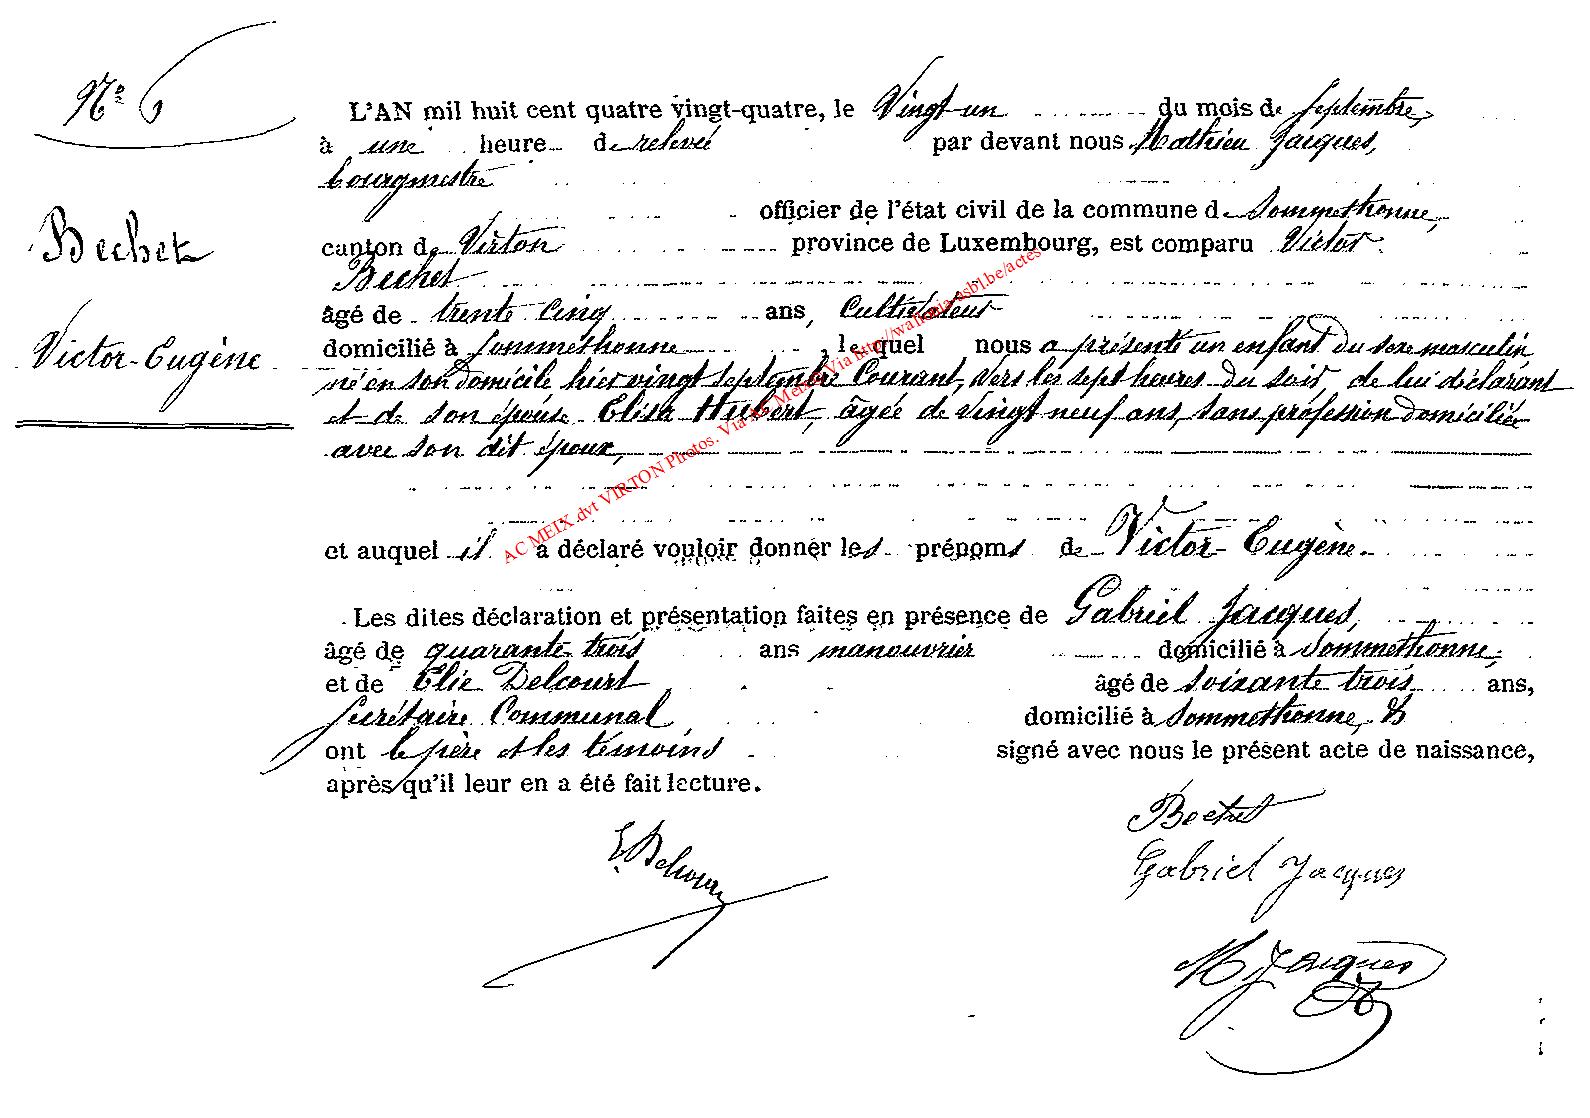 N° 6
Bechet
Victor-Eugène
L'AN mil huit cent quatre vingt-quatre, le Vingt-un du mois de Septembre,
à une heure de relevée par devant nous Mathieu Jacques,
bourgmestre
officier de l'état civil de la commune de Sommethonne,
canton de Virton province de Luxembourg, est comparu Victor
Bechet
âgé de trente cinq ans, Cultivateur
domicilié à Sommethonne, lequel nous a présenté un enfant du sexe masculin
né en son domicile hier vingt septembre Courant, vers les sept heures du soir, de lui déclarant
et de son épouse Elisa Hubert, âgée de vingt neuf ans, sans profession domiciliée
avec son dit époux,
et auquel il a déclaré vouloir donner les prénoms de Victor-Eugène.
Les dites déclaration et présentation faites en présence de Gabriel Jacques,
âgé de quarante trois ans manouvrier domicilié à Sommethonne,
et de Elie Delcourt âgé de soixante trois ans,
Secrétaire Communal domicilié à Sommethonne, &
ont le père et les témoins signé avec nous le présent acte de naissance,
après qu'il leur en a été fait lecture.
Bechet
E. Delcourt
Gabriel Jacques
M Jacques
AC MEIX dvt VIRTON Photos. Via AC Meix. Via http://wallonia-asbl.be/actes